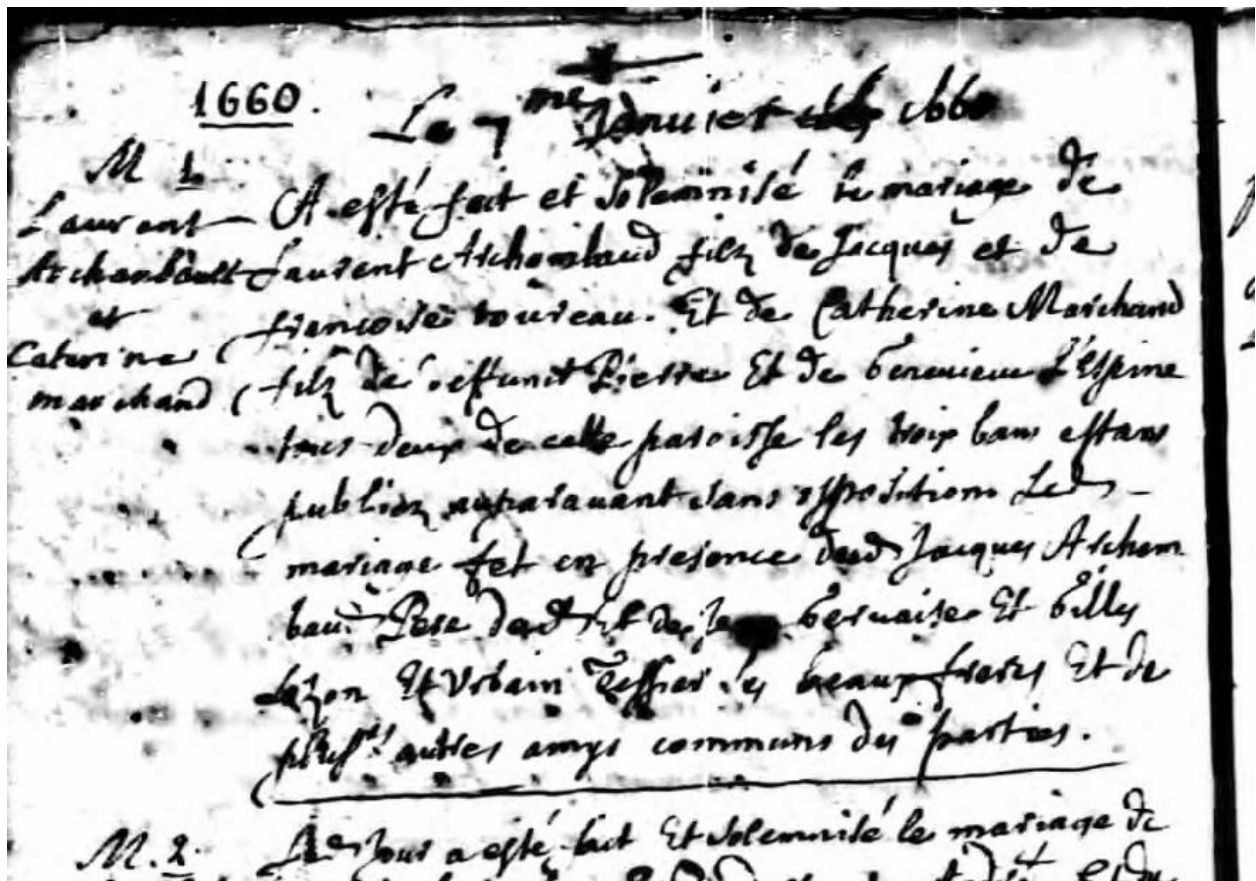 1660.
Le 7me Janvier 1660
M 1.
Laurent
Archambault
et
Caterine
marchand
A esté fait et solemnisé le mariage de
Laurent Archambaud filz de Jacques et de
francoise toureau. Et de Catherine Marchand
fille de deffunit Pierre Et de Genevieve l'Espine
tous deux de cette paroisse les trois bans estans
publiez auparavant sans opposition Led
mariage fet en presence dud Jacques Archam
bau Pere dud Et de Gervaise Et Gilles
Lozon Et Urbain Tessier ses beaux freres Et de
plusrs autres amys communs des parties.
M. 2.
Led Jour a esté fait Et solemnisé le mariage de